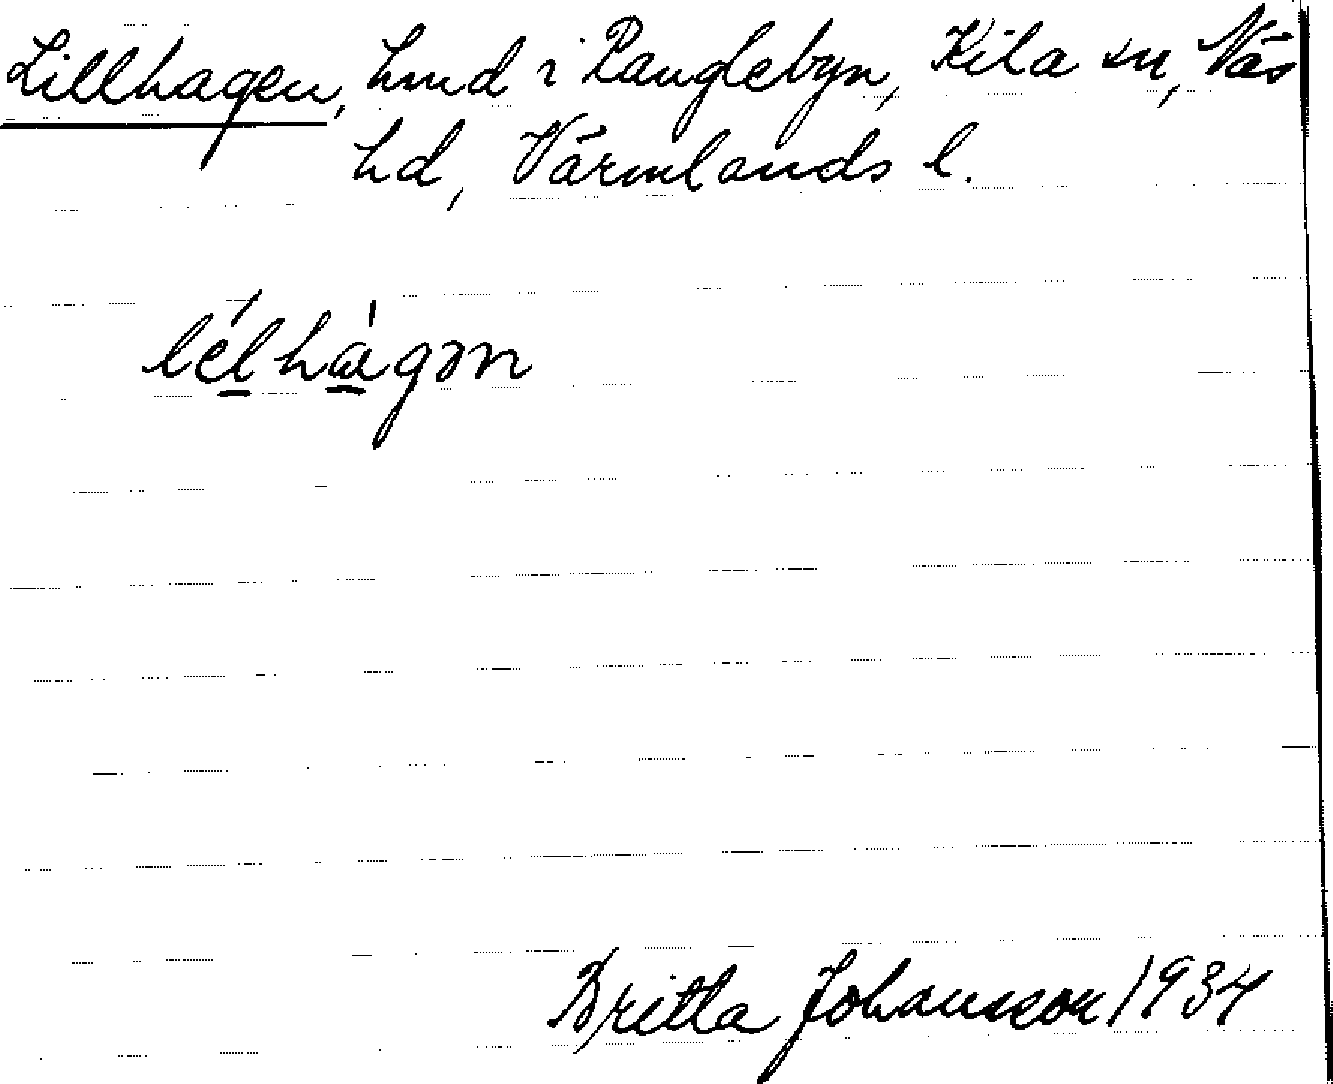 Lillhagen, hmd i Ranglebyn, Kila sn, Näs
hd, Värmlands l.
lélhàgən
Britta Johansson 1934